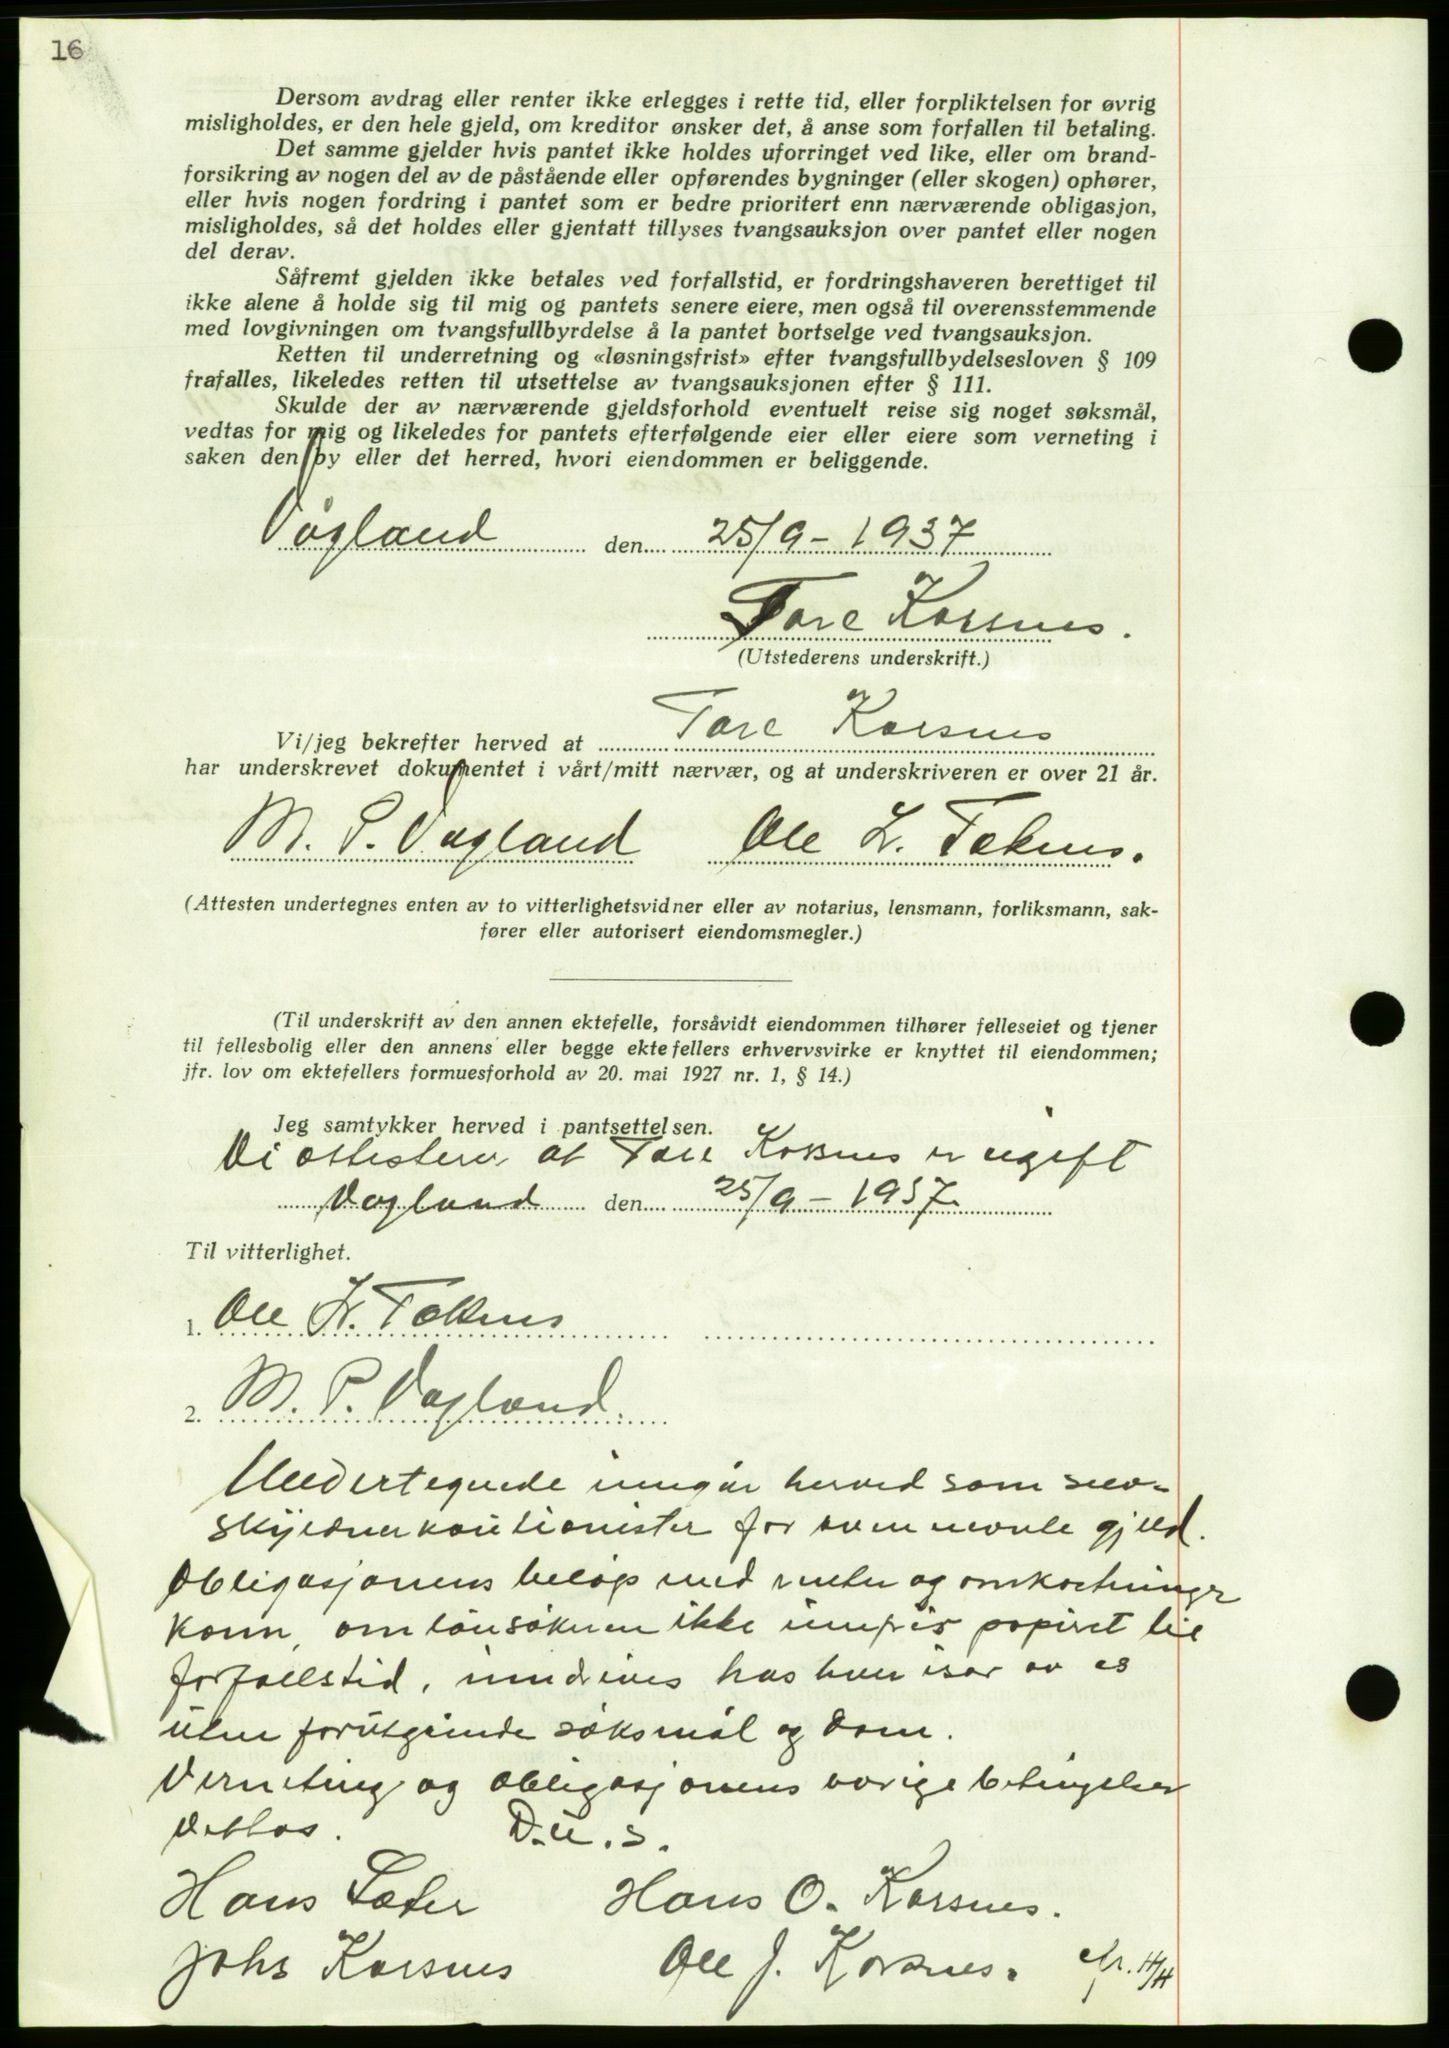 16
Dersom avdrag eller renter ikke erlegges i rette tid, eller forpliktelsen for øvrig
misligholdes, er den hele gjeld, om kreditor ønsker det, å anse som forfallen til betaling.
Det samme gjelder hvis pantet ikke holdes uforringet ved like, eller om brand-
forsikring av nogen del av de påstående eller opførendes bygninger (eller skogen) ophører,
eller hvis nogen fordring i pantet som er bedre prioritert enn nærværende obligasjon,
misligholdes, så det holdes eller gjentatt tillyses tvangsauksjon over pantet eller nogen
del derav.
Såfremt gjelden ikke betales ved forfallstid, er fordringshaveren berettiget til
ikke alene å holde sig til mig og pantets senere eiere, men også til overensstemmende
med lovgivningen om tvangsfullbyrdelse å la pantet bortselge ved tvangsauksjon.
Retten til underretning og «løsningsfrist» efter tvangsfullbydelsesloven § 109
frafalles, likeledes retten til utsettelse av tvangsauksjonen efter § 111.
Skulde der av nærværende gjeldsforhold eventuelt reise sig noget søksmål,
vedtas for mig og likeledes for pantets efterfølgende eier eller eiere som verneting i
saken den by eller det herred, hvori eiendommen er beliggende.
Vågland den 25/9-1937
Tore Korsnes.
(Utstederens underskrift.)
Vi/jeg bekrefter herved at Tore Korsnes
har underskrevet dokumentet i vårt/mitt nærvær, og at underskriveren er over 21 år.
M. P. Vagland Ole L. Tøknes.
(Attesten undertegnes enten av to vitterlighetsvidner eller av notarius, lensmann, forliksmann, sak-
fører eller autorisert eiendomsmegler.)
(Til underskrift av den annen ektefelle, forsåvidt eiendommen tilhører felleseiet og tjener
til fellesbolig eller den annens eller begge ektefellers erhvervsvirke er knyttet til eiendommen;
jfr. lov om ektefellers formuesforhold av 20. mai 1927 nr. 1, § 14.)
Jeg samtykker herved i pantsettelsen.
Vi attesterer at Tore Korsnes er ugift
Vagland den 25/9-1937
Til vitterlighet.
1. Ole L. Tøknes
2. M. P. Vagland.
Undertegnede inngår herved som selv-
skyldnerkautionister for ovennevnte gjeld.
Obligasjonens beløp med renter og omkostninger
kann, om lånsøkeren ikke innfris papiret til
forfallstid, inndrives hos hver især av os
uten forutgående søksmål og dom.
Verneting og obligasjonens øvrige betingelser
vedtas. D.u.s.
Hans Sæter Hans O. Korsnes.
Johs Korsnes Ole J. Korsnes.